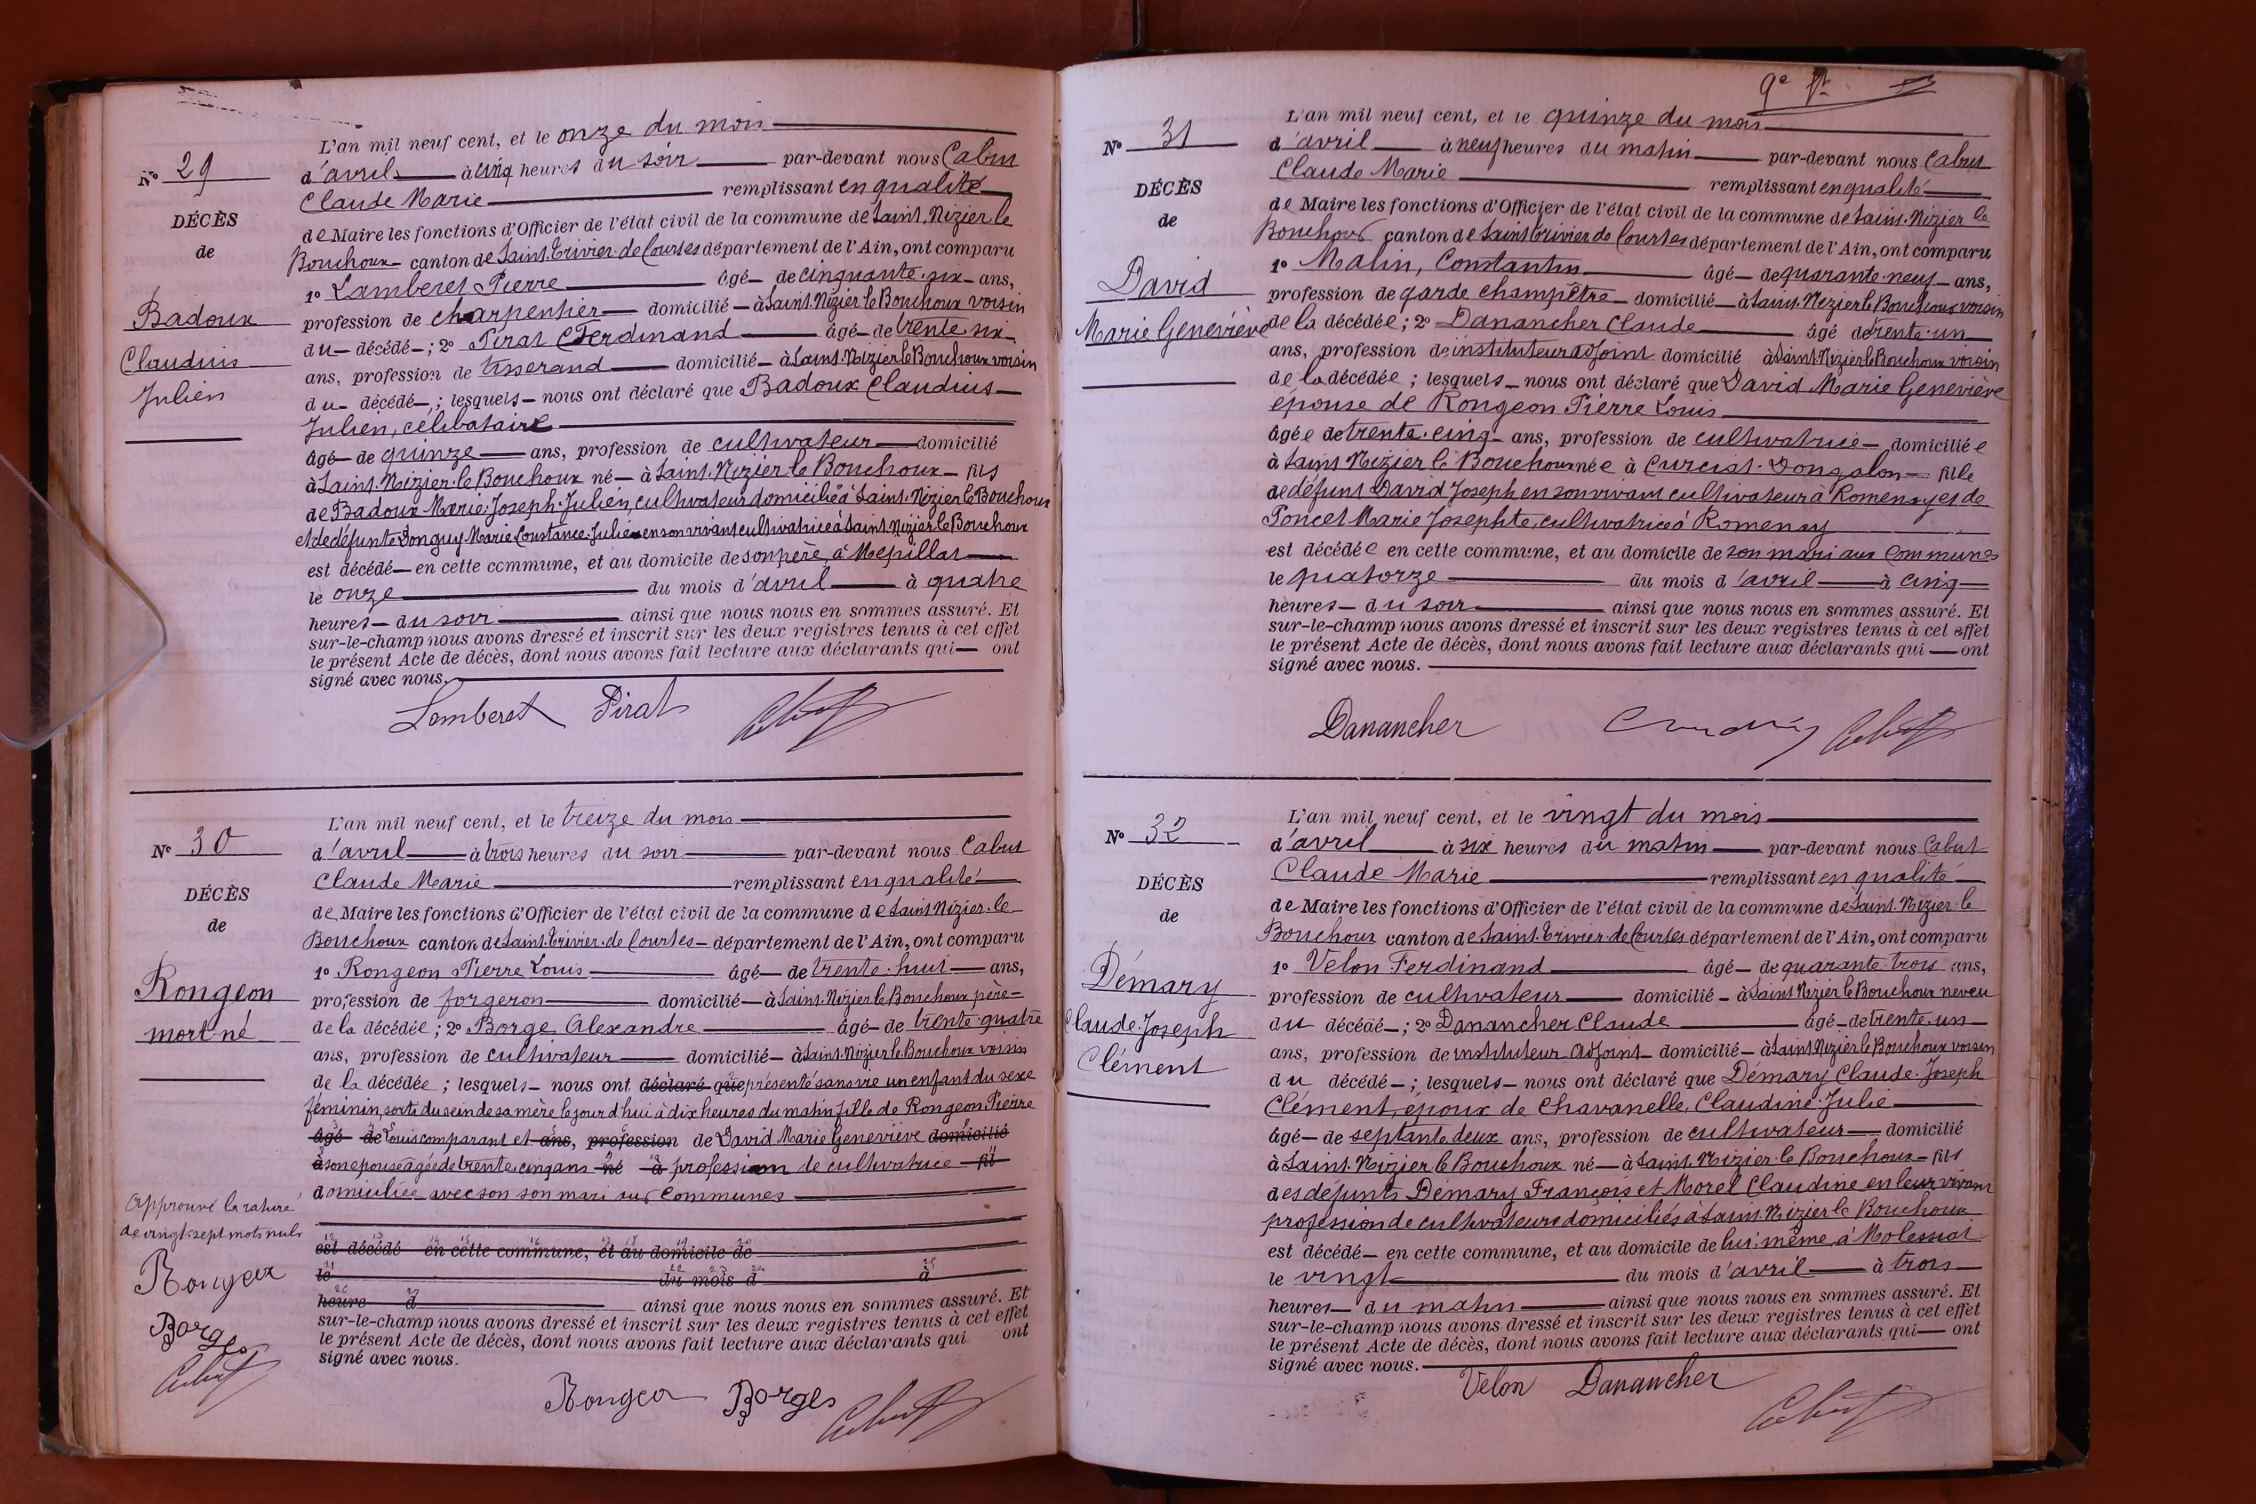 N° 29
DÉCÈS
de
Badoux
Claudius
Julien
L'an mil neuf cent, et le onze du mois
d'avril à cinq heures du soir par-devant nous Cabut
Claude Marie remplissant en qualité
de Maire les fonctions d'Officier de l'état civil de la commune de Saint-Nizier-le
Bouchoux canton de Saint-Trivier-de Courtes département de l'Ain, ont comparu
1° Lamberet Pierre âgé de cinquante-six ans,
profession de charpentier domicilié à Saint-Nizier le Bouchoux voisin
du décédé ; 2° Pirat Ferdinand âgé de trente-six
ans, profession de tisserand domicilié à Saint-Nizier le Bouchoux voisin
du décédé ; lesquels nous ont déclaré que Badoux Claudius
Julien, célibataire
âgé de quinze ans, profession de cultivateur domicilié
à Saint-Nizier-le Bouchoux né à Saint-Nizier le Bouchoux fils
de Badoux Marie-Joseph-Julien, cultivateur domicilié à Saint-Nizier le Bouchoux
et de défunte Donguy Marie Constance-Julie en son vivant cultivatrice à Saint-Nizier le Bouchoux
est décédé en cette commune, et au domicile de son père, à Mepillat
le onze du mois d'avril à quatre
heures du soir ainsi que nous nous en sommes assuré. Et
sur-le-champ nous avons dressé et inscrit sur les deux registres tenus à cet effet
le présent Acte de décès, dont nous avons fait lecture aux déclarants qui ont
signé avec nous.
Lamberet Pirat Cabut
N° 30
DÉCÈS
de
Rongeon
mort-né
L'an mil neuf cent, et le treize du mois
d'avril à trois heures du soir par-devant nous Cabut
Claude Marie remplissant en qualité
de Maire les fonctions d'Officier de l'état civil de la commune de Saint Nizier-le
Bouchoux canton de Saint-Trivier-de Courtes département de l'Ain, ont comparu
1° Rongeon Pierre Louis âgé de trente-huit ans,
profession de forgeron domicilié à Saint-Nizier le Bouchoux père
de la décédée ; 2° Borge Alexandre âgé de trente-quatre
ans, profession de cultivateur domicilié à Saint-Nizier le Bouchoux voisin
de la décédée ; lesquels nous ont déclaré que présenté sans vie un enfant du sexe
féminin, sorti du sein de sa mère le jour d'hui à dix heures du matin fille de Rongeon Pierre
âgé de Louis comparant et ans, profession de David Marie Geneviève domicilié
à son épouse âgée de trente-cinq ans né à profession de cultivatrice fil
domiciliée avec son son mari aux Communes
est décédé en cette commune, et au domicile de
le du mois d à
heure d ainsi que nous nous en sommes assuré. Et
sur-le-champ nous avons dressé et inscrit sur les deux registres tenus à cet effet
le présent Acte de décès, dont nous avons fait lecture aux déclarants qui ont
signé avec nous.
Approuvé la rature
de vingt-sept mots nuls
Rongeon
Borges
Cabut
Rongeon Borges Cabut
9e ft
N° 31
DÉCÈS
de
David
Marie Geneviève
L'an mil neuf cent, et le quinze du mois
d'avril à neuf heures du matin par-devant nous Cabut
Claude Marie remplissant en qualité
de Maire les fonctions d'Officier de l'état civil de la commune de Saint-Nizier le
Bouchoux canton de Saint Trivier de Courtes département de l'Ain, ont comparu
1° Malin, Constantin âgé de quarante-neuf ans,
profession de garde champêtre domicilié à Saint-Nizier le Bouchoux voisin
de la décédée ; 2° Danancher Claude âgé de trente-un
ans, profession de instituteur adjoint domicilié à Saint-Nizier le Bouchoux voisin
de la décédée ; lesquels nous ont déclaré que David Marie Geneviève
épouse de Rongeon Pierre Louis
âgée de trente-cinq ans, profession de cultivatrice domiciliée
à Saint Nizier le Bouchoux née à Curciat-Dongalon fille
de défunt David Joseph en son vivant cultivateur à Romenay et de
Poncet Marie Josephte, cultivatrice à Romenay
est décédée en cette commune, et au domicile de son mari aux Communes
le quatorze du mois d'avril à cinq
heures du soir ainsi que nous nous en sommes assuré. Et
sur-le-champ nous avons dressé et inscrit sur les deux registres tenus à cet effet
le présent Acte de décès, dont nous avons fait lecture aux déclarants qui ont
signé avec nous.
Danancher Cabut
N° 32
DÉCÈS
de
Démary
Claude-Joseph
Clément
L'an mil neuf cent, et le vingt du mois
d'avril à six heures du matin par-devant nous Cabut
Claude Marie remplissant en qualité
de Maire les fonctions d'Officier de l'état civil de la commune de Saint-Nizier-le
Bouchoux canton de Saint-Trivier-de Courtes département de l'Ain, ont comparu
1° Velon Ferdinand âgé de quarante-trois ans,
profession de cultivateur domicilié à Saint Nizier le Bouchoux neveu
du décédé ; 2° Danancher Claude âgé de trente-un
ans, profession de instituteur adjoint domicilié à Saint Nizier le Bouchoux voisin
du décédé ; lesquels nous ont déclaré que Démary Claude-Joseph
Clément, époux de Chavanelle, Claudine-Julie
âgé de septante-deux ans, profession de cultivateur domicilié
à Saint-Nizier le Bouchoux né à Saint-Nizier-le Bouchoux fils
des défunts Démary François et Morel Claudine en leur vivant
profession de cultivateurs domiciliés à Saint-Nizier le Bouchoux
est décédé en cette commune, et au domicile de lui-même, à Molessiat
le vingt du mois d'avril à trois
heures du matin ainsi que nous nous en sommes assuré. Et
sur-le-champ nous avons dressé et inscrit sur les deux registres tenus à cet effet
le présent Acte de décès, dont nous avons fait lecture aux déclarants qui ont
signé avec nous.
Velon Danancher Cabut